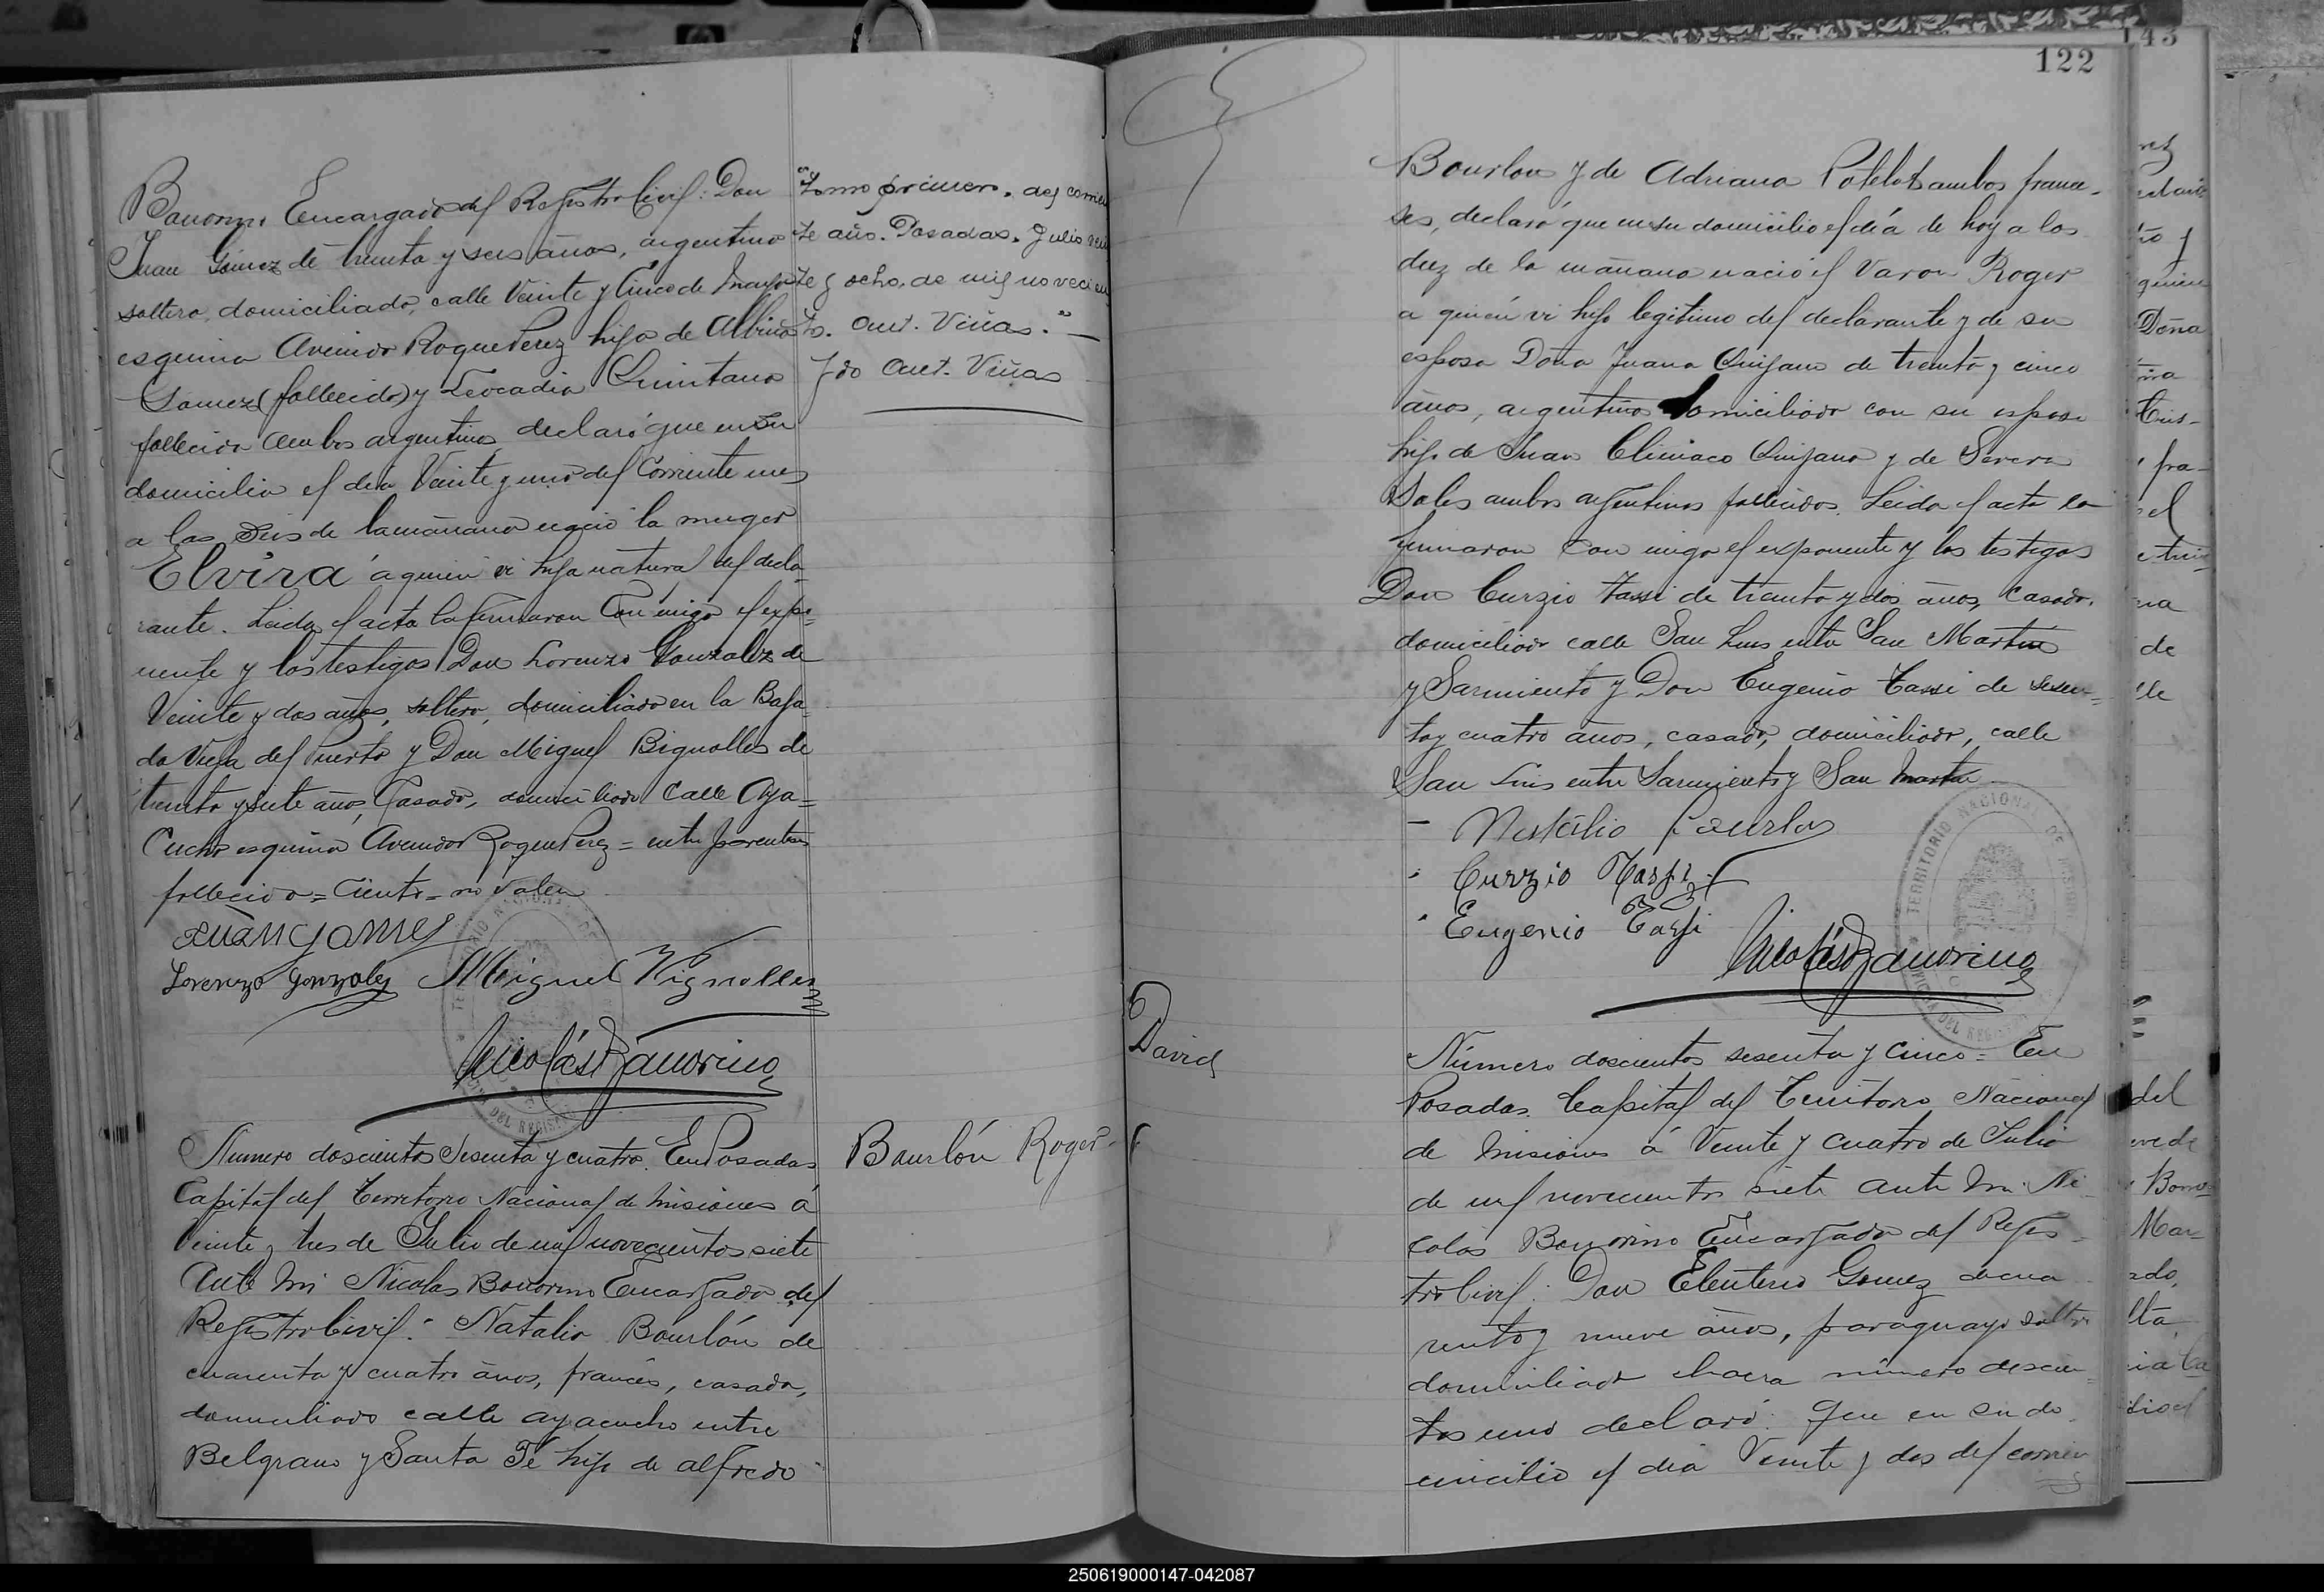 Bonorino Encargado del Registro Civil: Don
Juan Gómez de treinta y seis años, argentino
soltero, domiciliado, calle Veinte y Cinco de Mayo
esquina Avenida Roque Perez hijo de Albino
Gomez (fallecido) y Leocadia Quintana
fallecida ambos argentinos, declaró que en su
domicilio el día Veinte y uno del Corriente mes
a las Seis de la mañana nació la muger
Elvira á quien vi hija natural del decla-
rante. Leida el acta la firmaron Con migo el expo-
nente y los testigos Don Lorenzo Gonzalez de
Veinte y dos años, soltero, domiciliado en la Baja-
da Vieja del Puerto y Don Miguel Bignolles de
treinta y siete años, Casado, domiciliado Calle Aya=
Cucho esquina Avenida Roque Perez = entre parentesis
fallecido = Ciento = no valen
Juan gomes
Lorenzo Gonzalez Miguel Vignolles
Nicolás Bonorino
"Tomo primero, del corrien
te año. Posadas. Julio vein
te y ocho, de mil novecien
tos. Aut. Viñas."
Fdo Aut. Viñas
Número doscientos Sesenta y cuatro. En Posadas
Capital del Territorio Nacional de Misiones á
Veinte y tres de Julio de mil novecientos siete
Ante mi Nicolas Bonorino Encargado del
Registro Civil: Natalio Bourlón de
cuarenta y cuatro años, francés, casado,
domiciliado calle ayacucho entre
Belgrano y Santa Fé hijo de alfredo
Bourlón Roger
122
Bourlon y de Adriana Potelot ambos france-
ses, declaró que en su domicilio el día de hoy a las
diez de la mañana nació el Varon Roger
a quien vi hijo legitimo del declarante y de su
esposa Doña Juana Quijano de treinta y cinco
años, argentina domiciliada con su esposo
hija de Juan Climaco Quijano y de Severa
Sales ambos argentinos fallecidos. Leida el acta la
firmaron Con migo el exponente y los testigos
Don Curzio Tassi de treinta y dos años, Casado,
domiciliado calle San Luis entre San Martin
y Sarmiento y Don Eugenio Tassi de sesen=
ta y cuatro años, casado, domiciliado, calle
San Luis entre Sarmiento y San Martin
Bourlon
Curzio Tassi
Eugenio Tassi
Nicolás Bonorino
TERRITORIO NACIONAL DE MISIONES
David
Número doscientos sesenta y Cinco = En
Posadas Capital del Territorio Nacional
de Misiones á Veinte y Cuatro de Julio
de mil novecientos siete ante Mi Ni-
colas Bonorino Encargado del Regis-
tro Civil: Don Eleuterio Gomez de cua
renta y nueve años, paraguayo soltero
domiciliado chacra número doscien-
tos uno declaró: Que en su do-
micilio el día Veinte y dos del corrien
143
Doña
de
del
250619000147-042087